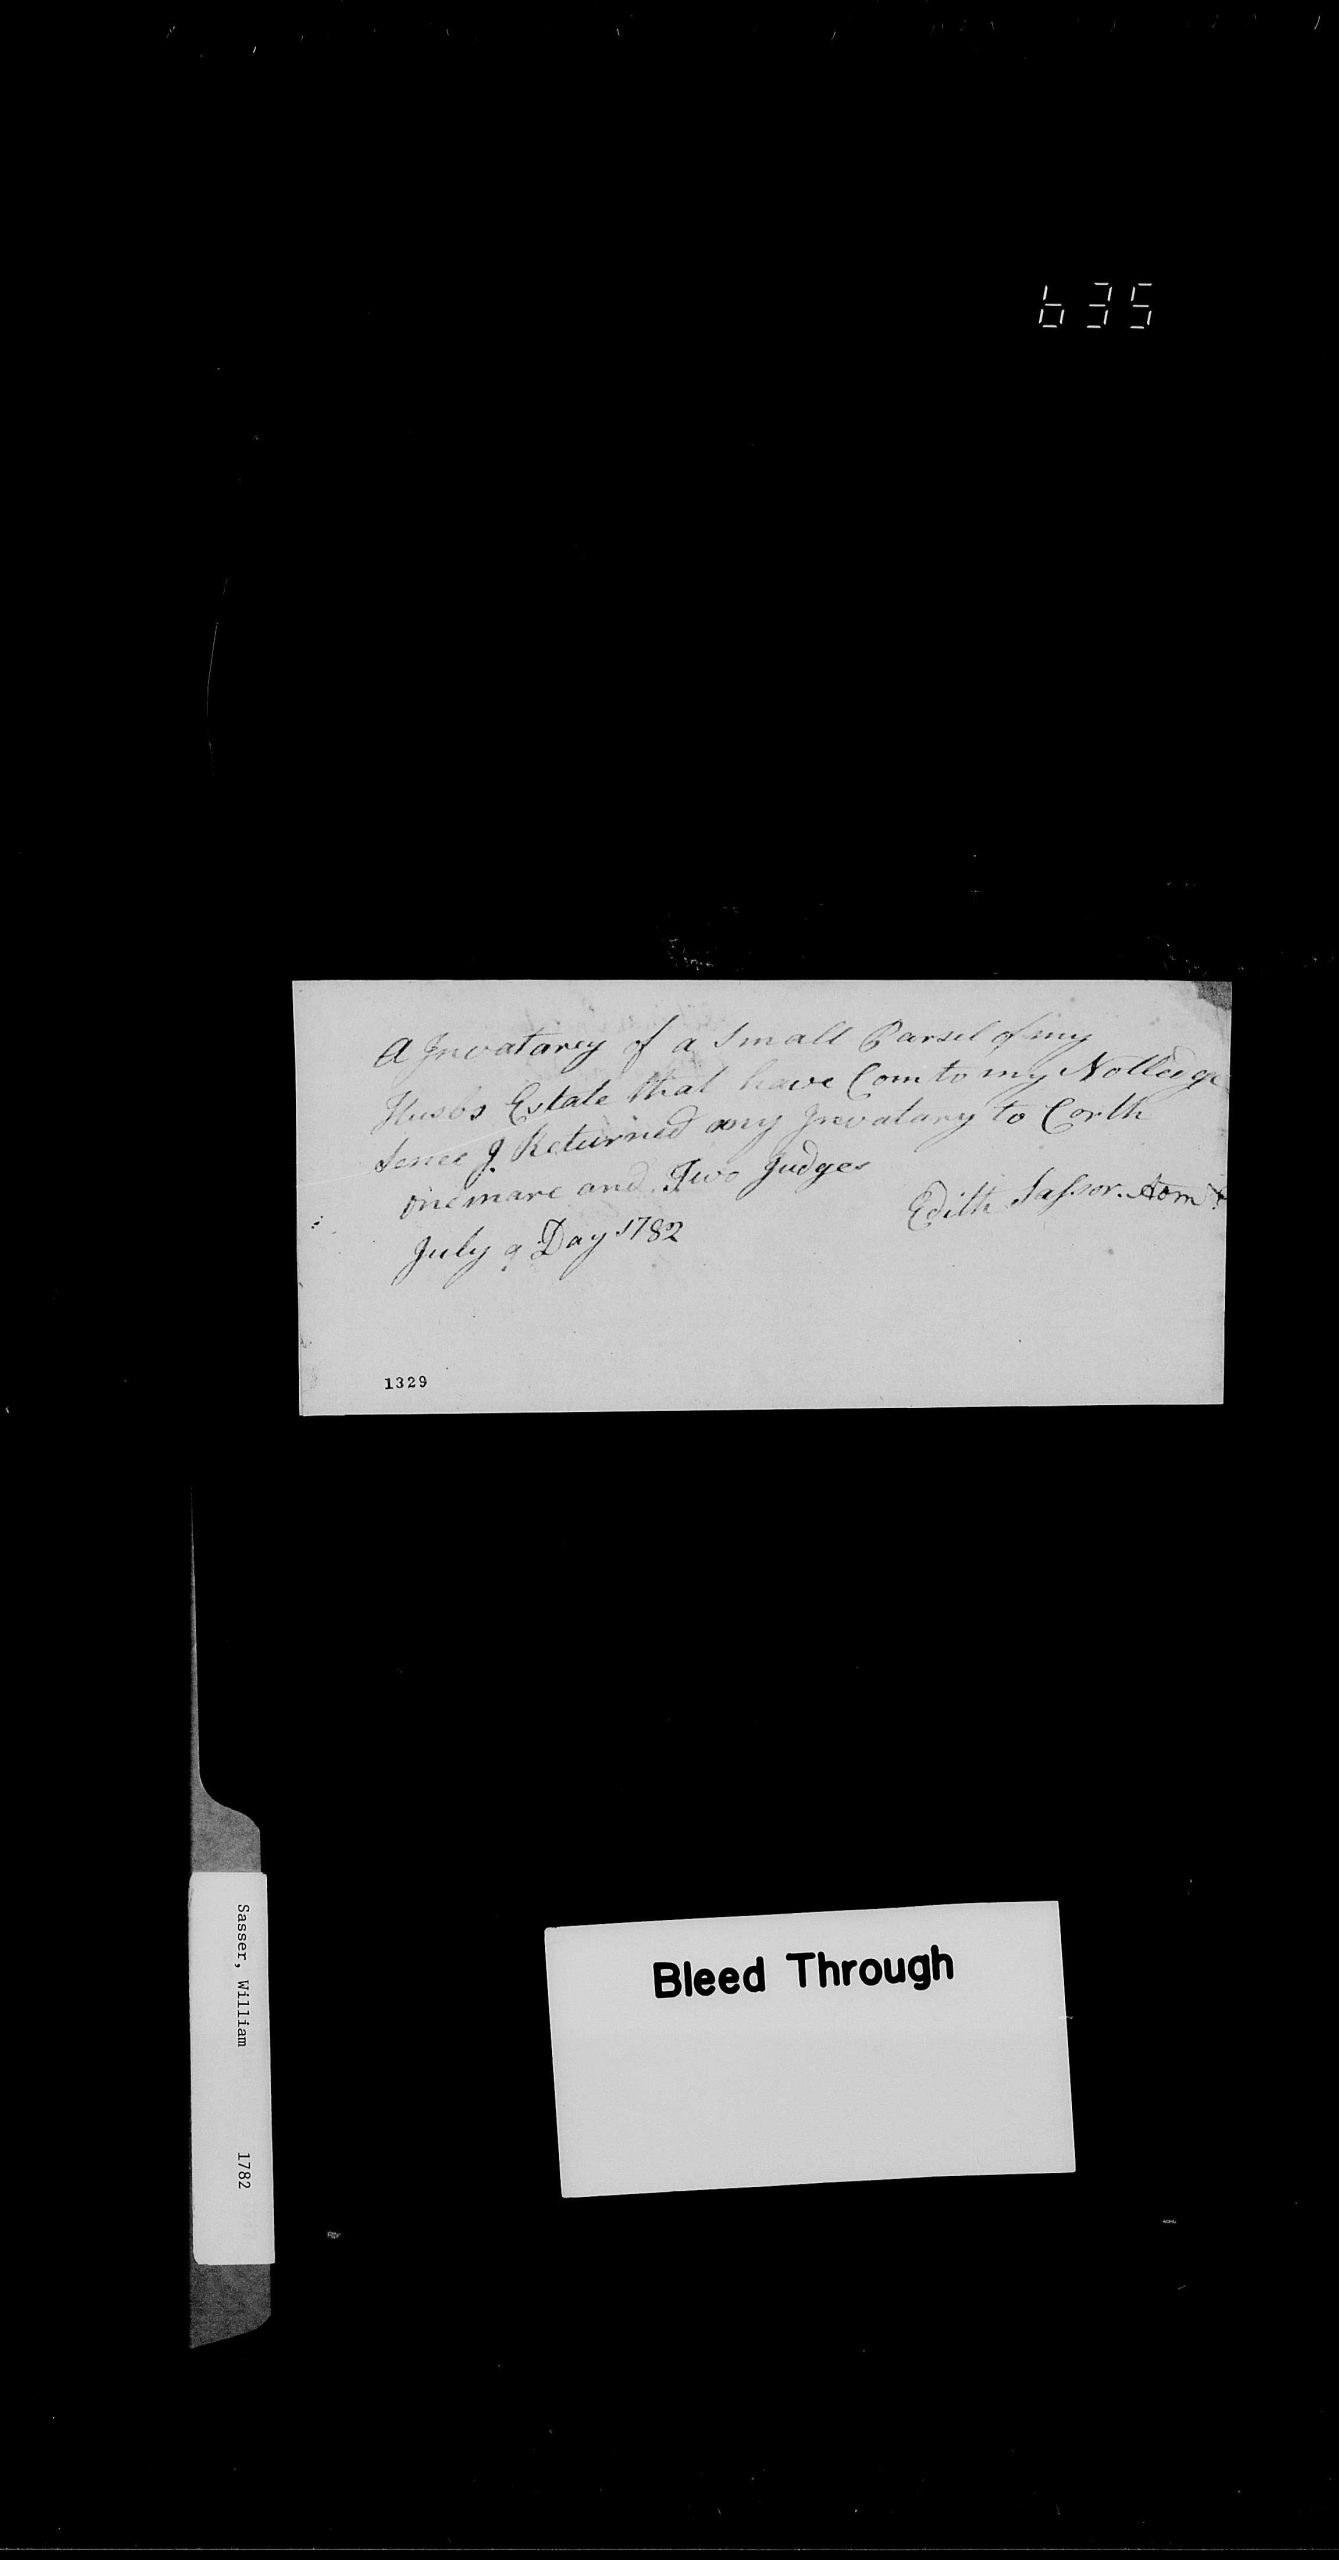 635
A Invatarey of a Small Parsel of my
Husbs Estate that have Com to my Nolledge
Sence I Returned my Invatary to Corth
one mare and Two Judges
Edith Sassor. Adm
July 9 Day 1782
1329
Sasser, William 1782
Bleed Through